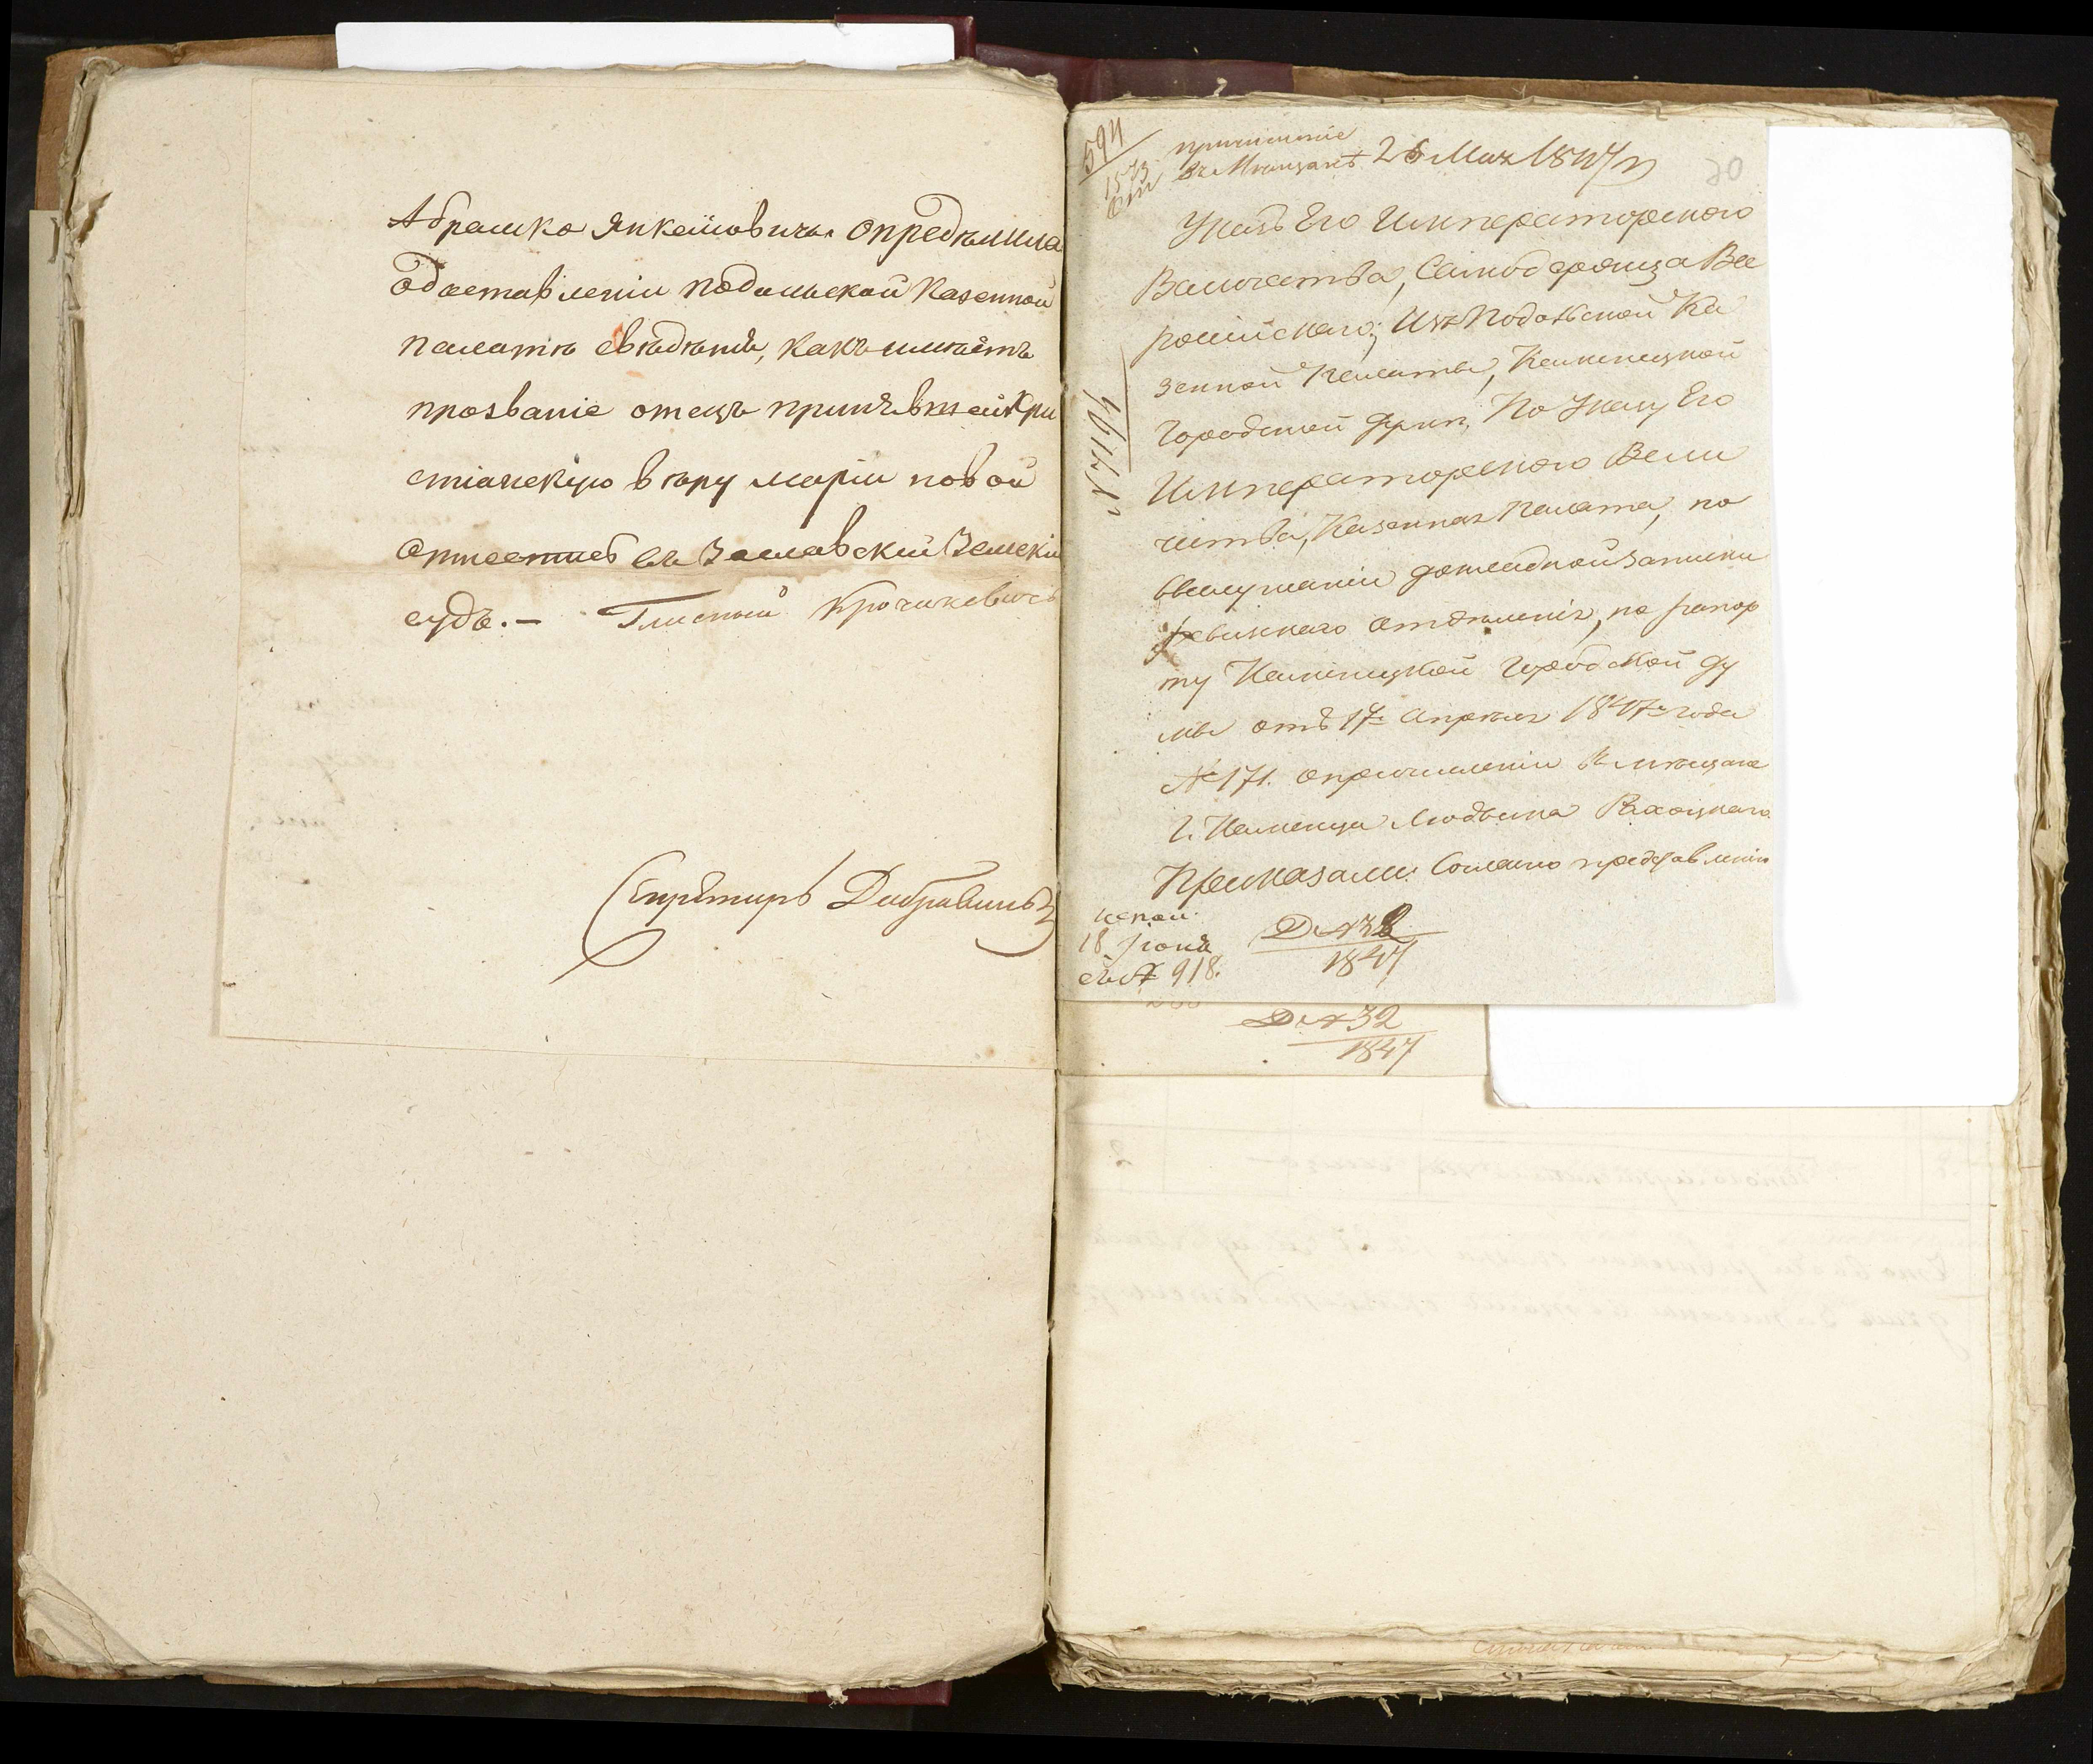 Абрамко Янкеліовичъ. Опредѣлила
о доставленіи Подольской Казенной
Палатѣ свѣдѣнія, какъ имѣетъ
прозваніе отецъ принявшей Хри
стіанскую вѣру Маріи новой
отнестись въ Заславскій Земскій
судъ. — Гласный
Секретарь
594
1573
причисленіе
въ Мѣщане 26 Мая 1847
30
Указъ Его Императорского
Величества, Самодержца Все
россійскаго, Изъ Подольской Ка
зенной Палаты, Каменецкой
Городской Думѣ, По Указу Его
Императорского Вели
чества, Казенная Палата, по
выслушаніи докладной записки
ревизскаго отдѣленія, по рапор
ту Каменецкой Городской Ду
мы отъ 17 Апрѣля 1847 года
№ 171. о причисленіи въ мѣщане
г. Каменца Людвика
Приказали: Согласно представленію
испол:
18 Іюня
съ № 918.
Д. № 32
1847
Д. № 32
1847